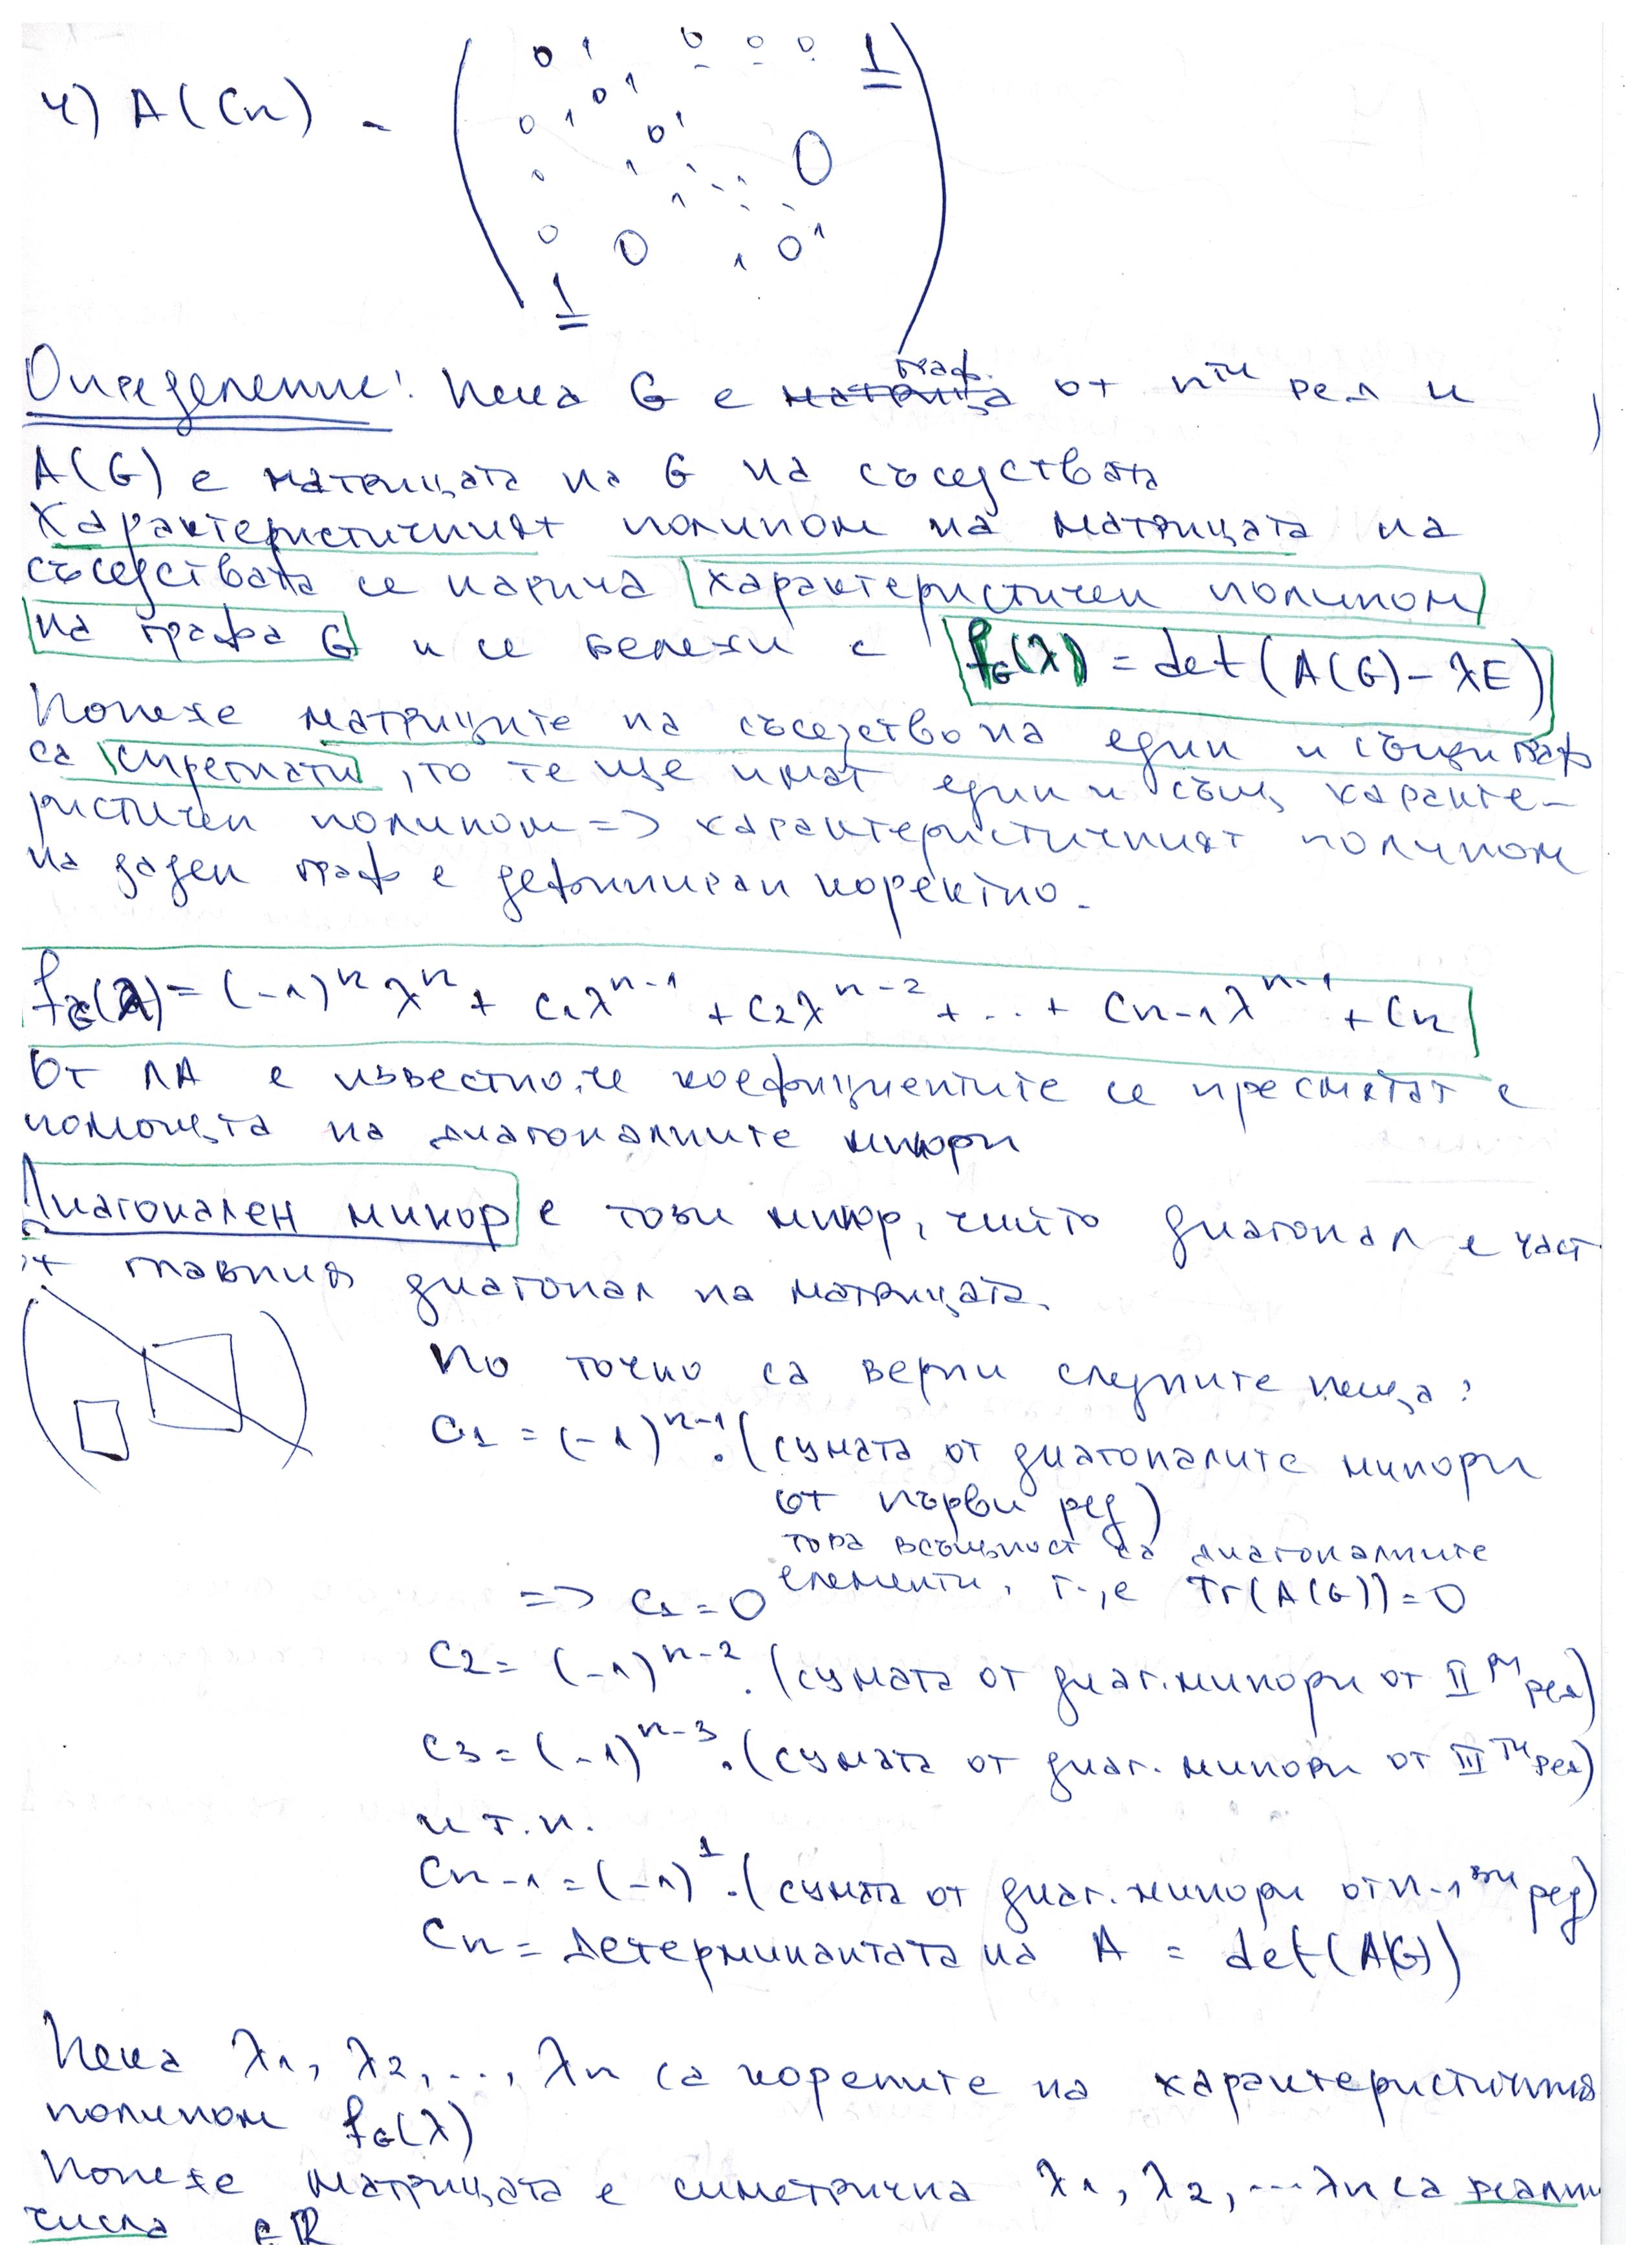 4) A(Cn) -
0 1 0 0 0 1
0 1
0 1 0 1
0 1 0
1
0 0 1 0 1
1
Определение: Нека G е матрица граф. от nти ред и
A(G) е матрицата на G на съседствата
Характеристичният полином на матрицата на
съседствата се нарича характеристичен полином
на графа G и се бележи с fG(λ) = det(A(G) - λE)
Понеже матриците на съседство на един и същи граф
са спрегнати, то те ще имат един и същ характе-
ристичен полином => характеристичният полином
на даден граф е дефиниран коректно.
fG(λ) = (-1)ⁿ λⁿ + c₁λⁿ⁻¹ + c₂λⁿ⁻² + ... + cn-1λⁿ⁻¹ + cn
От ЛА е известно, че коефициентите се пресмятат с
помощта на диагоналните минори
Диагонален минор е този минор, чийто диагонал е част
от главния диагонал на матрицата.
По точно са верни следните неща:
c₁ = (-1)ⁿ⁻¹.(сумата от диагоналите минори
от първи ред)
това всъщност са диагоналните
елементи, т.,е Tr(A(G)) = 0
=> c₁ = 0
c₂ = (-1)ⁿ⁻².(сумата от диаг.минори от IIри ред)
c₃ = (-1)ⁿ⁻³.(сумата от диаг. минори от IIIти ред)
и т.н.
cn-1 = (-1)¹.(сумата от диаг. минори от n-1ви ред)
cn = Детерминантата на A = det(A(G))
Нека λ₁, λ₂, ..., λn са корените на характеристичния
полином fG(λ)
Понеже матрицата е симетрична λ₁, λ₂, ... λn са реални
числа ∈ ℝ